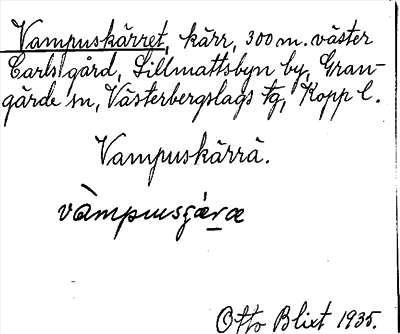 Vampuskärret, kärr, 300 m. väster
Carls gård, Sillmattsbyn by, Gran-
gärde sn, Västerbergslags tg, Kopp l.
Vampuskärrä.
vàmpusɟäræ
Otto Blixt 1935.